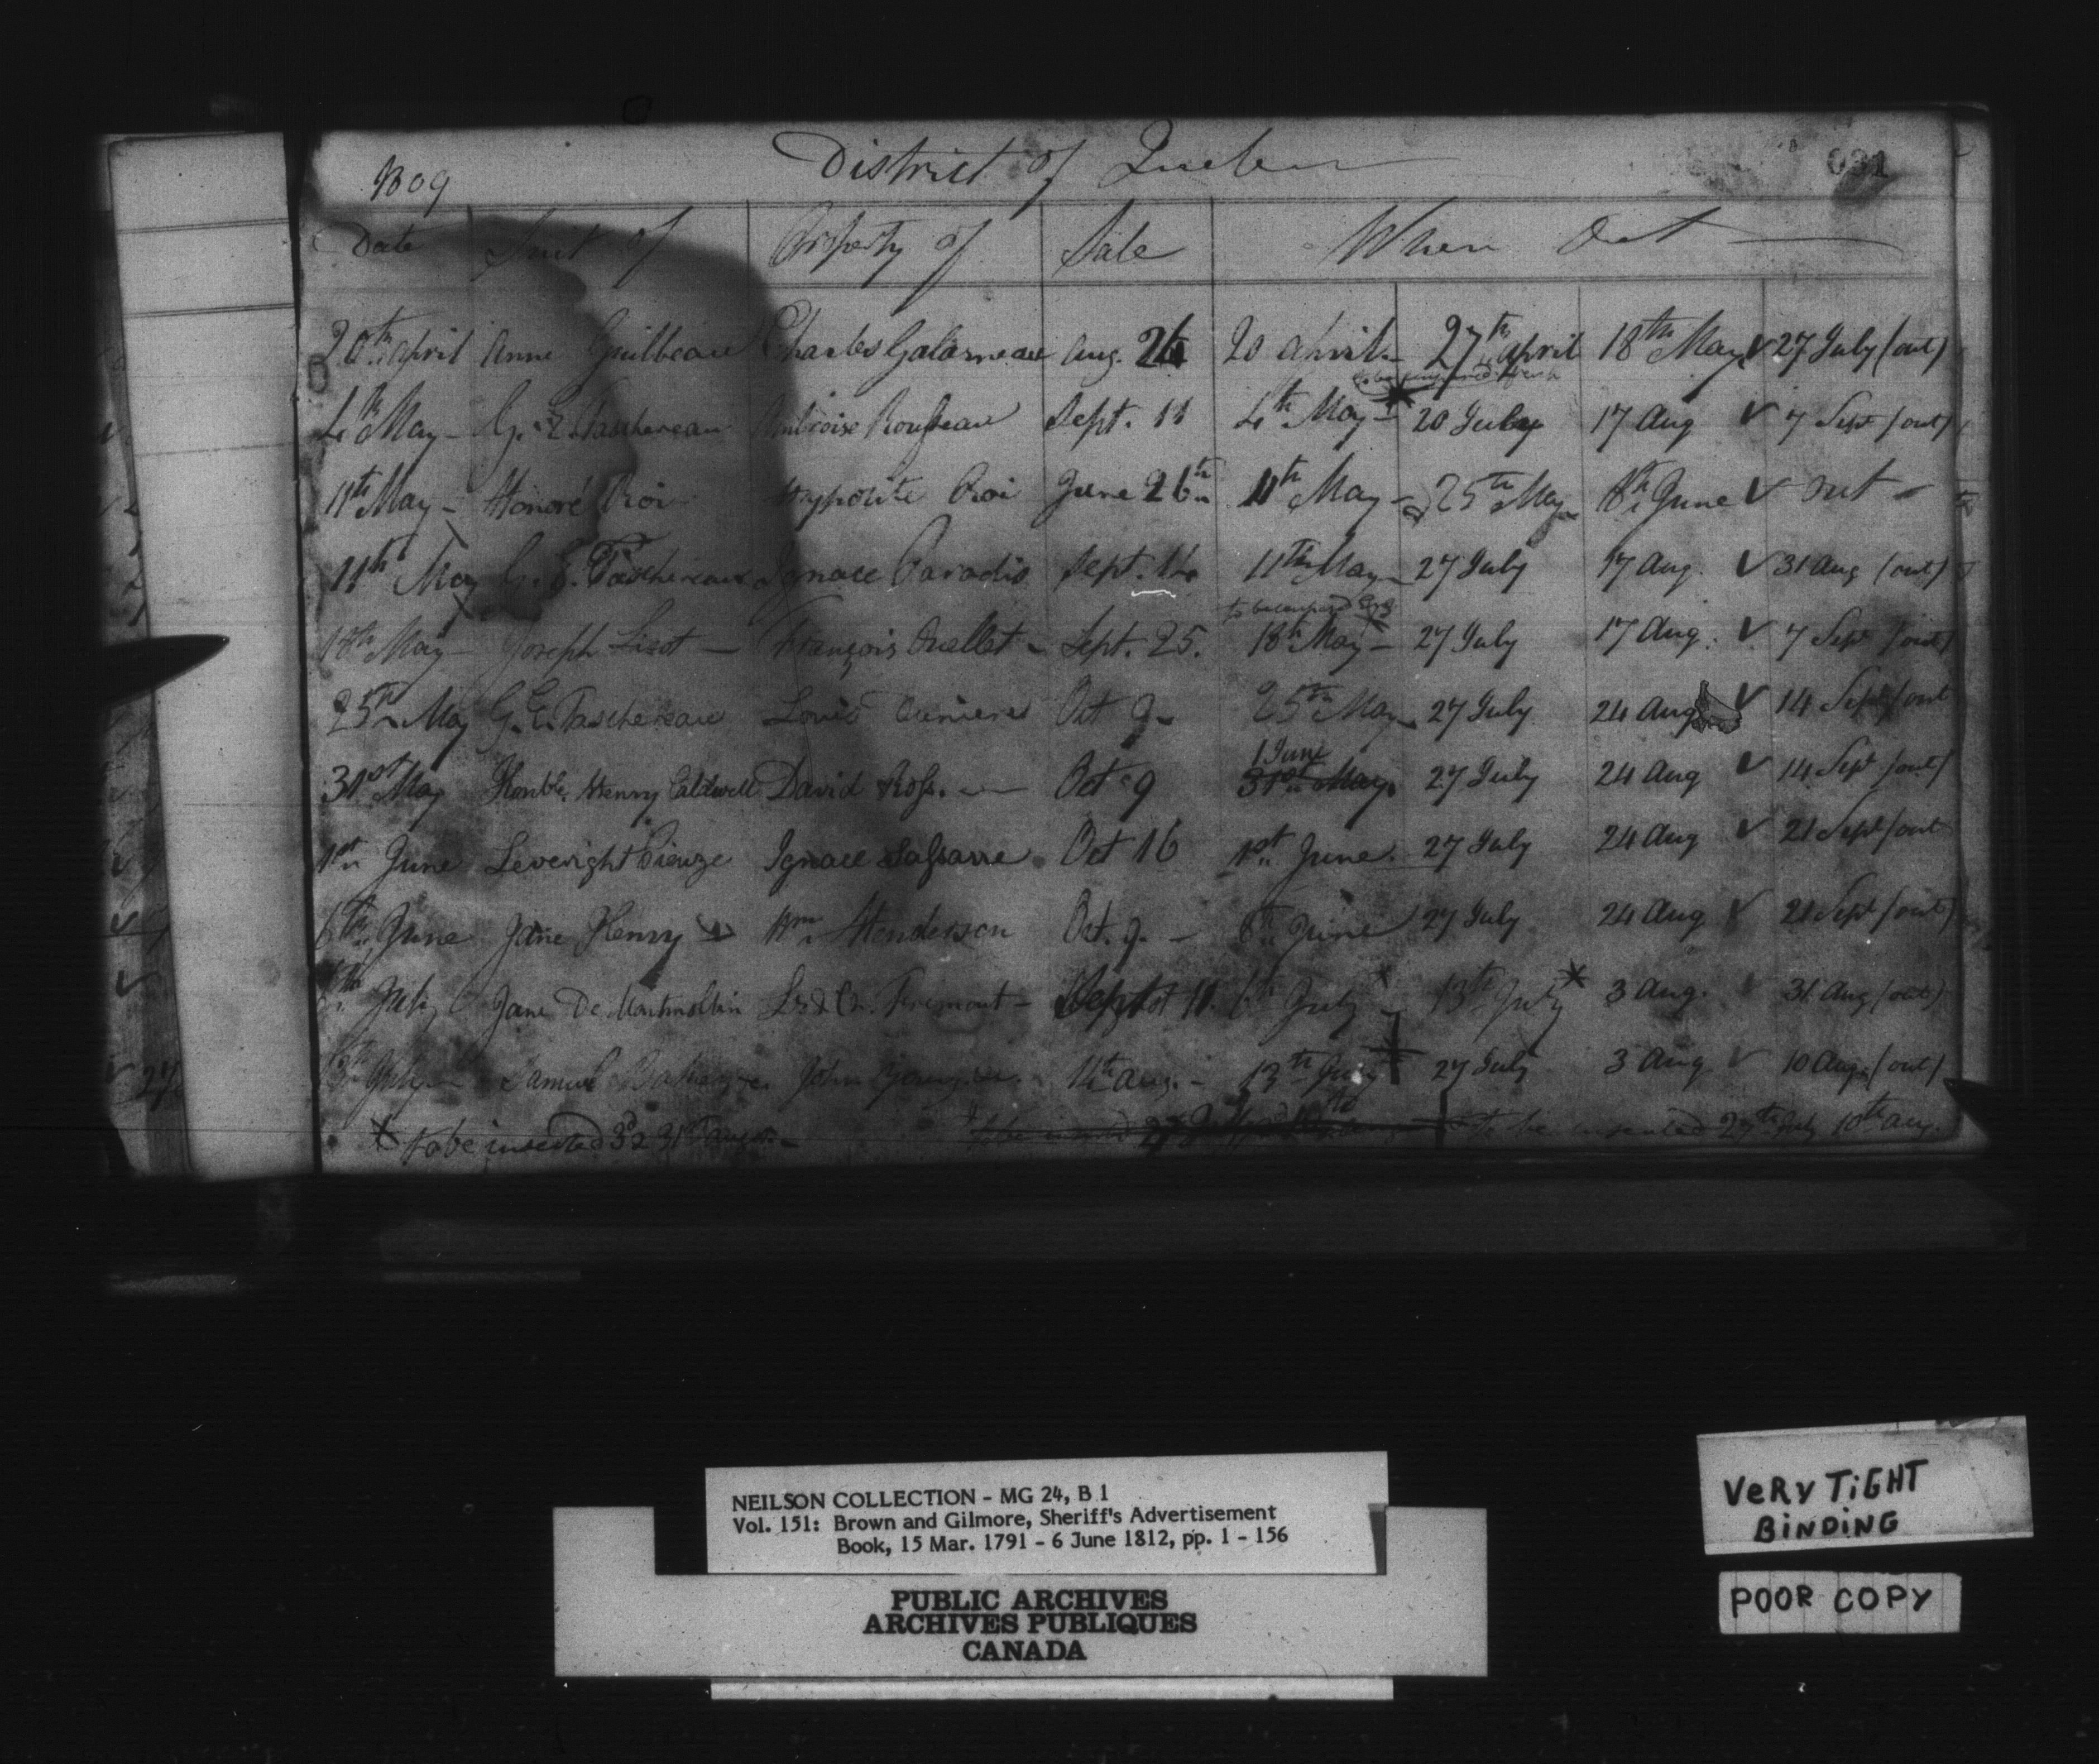 1809 District of Quebec 031
Date Suit of Property of Sale When Out
20th april Anne Guilbeau Charles Galarneau aug. 26 20 april 27th april 18th May ✓ 27 July (out)
4th May G. E. Taschereau Ambroise Rousseau Sept. 11 4th May 20 July 17 Aug ✓ 7 Sept (out)
11th May Honoré Roi Hyppolite Roi June 26th 11th May 25th May 8th June ✓ out
11th May G. E. Taschereau Ignace Paradis Sept. 14 11th May 27 July 17 Aug. ✓ 31 Aug (out)
18th May Joseph Lizot François Ouellet Sept. 25. 18th May 27 July 17 Aug. ✓ 7 Sept (out)
25th May G. E. Taschereau Louis Oct 9 25th May 27 July 24 Aug ✓ 14 Sept (out
1 June
31st May Honble. Henry Caldwell David Ross. Oct 9 31st May 27 July 24 Aug ✓ 14 Sept (out)
1st June Ignace Oct 16 1st June 27 July 24 Aug ✓ 21 Sept (out
6th June Jane Henry Wm Henderson Oct. 9. 8th June 27 July 24 Aug ✓ 21 Sept (out)
6th July Jane De Montmollin Fremont Sept 11. 6th July 13th July * 3 Aug. 31 Aug (out)
13th July Samuel John Young 14th aug. 13th July 27 July 3 Aug ✓ 10 Aug. (out)
* to be inserted 3d & 31st august to be inserted 27th July 10th aug.
NEILSON COLLECTION - MG 24, B 1
Vol. 151: Brown and Gilmore, Sheriff's Advertisement
Book, 15 Mar. 1791 - 6 June 1812, pp. 1 - 156
PUBLIC ARCHIVES
ARCHIVES PUBLIQUES
CANADA
VERY TIGHT
BINDING
POOR COPY